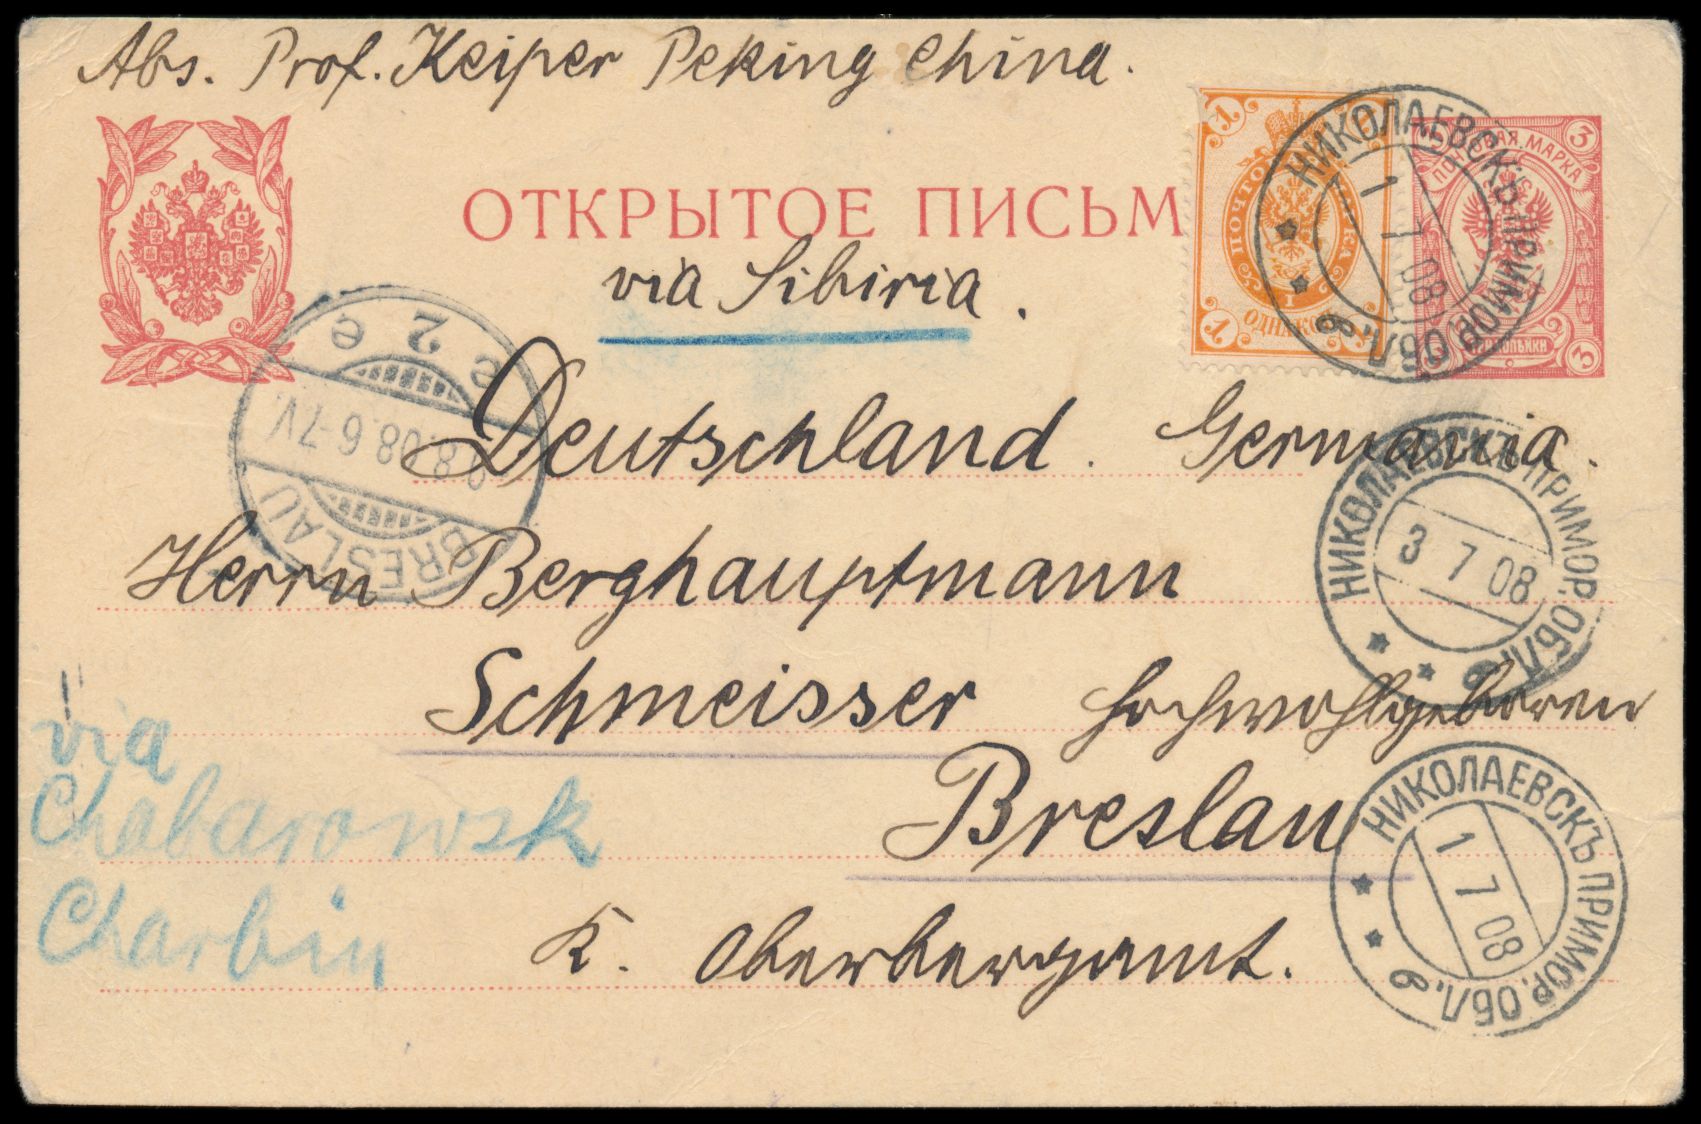 Abs. Prof. Keiper Peking China.
ОТКРЫТОЕ ПИСЬМ
via Sibiria.
1 1
ПОЧТО КА
1
ОДНА КО
1
3
ПОЧТОВАЯ МАРКА
КОПѢЙКИ
3
НИКОЛАЕВСКЪ ПРИМОР. ОБЛ. б
1 7 08
Deutschland. Germania.
BRESLAU
.8.08.6-7V.
2 e
НИКОЛАЕВСКЪ ПРИМОР. ОБЛ. б
3 7 08
Herrn Berghauptmann
Schmeisser Hochwohlgeboren
Breslau
K. Oberbergamt.
via
Chabarowsk
Charbin
НИКОЛАЕВСКЪ ПРИМОР. ОБЛ. б
1 7 08